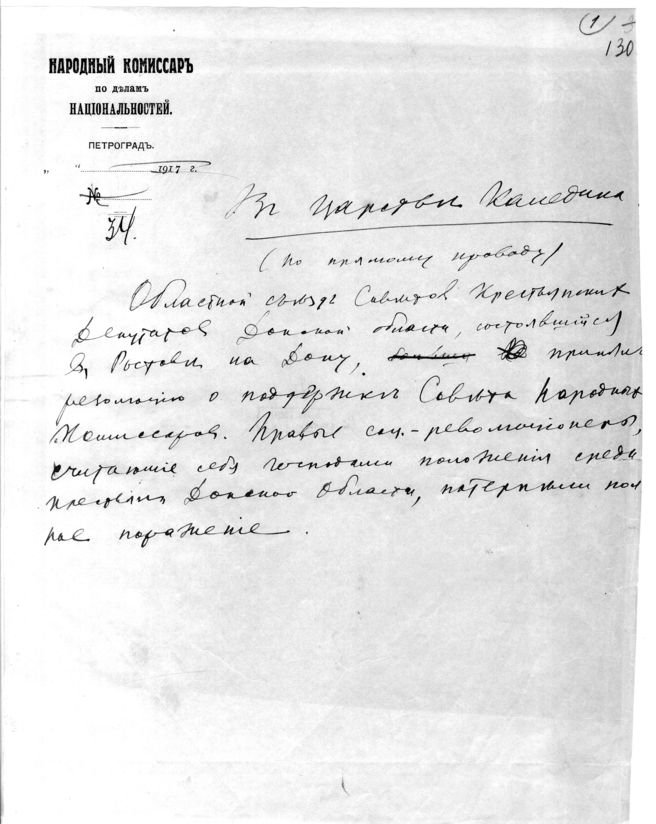 (1)
130
НАРОДНЫЙ КОМИССАРЪ
ПО ДѢЛАМЪ
НАЦІОНАЛЬНОСТЕЙ.
ПЕТРОГРАДЪ.
„ “ 1917 г.
№
34.
Въ царствѣ Каледина.
(по прямому проводу)
Областной съѣздъ Совѣтов Крестьянских
Депутатов Донской области, состоявшийся
в Ростовѣ на Дону, принял
резолюцію о поддержкѣ Совѣта Народных
Комиссаров. Правые соц.-революционеры,
считающіе себя господами положенія среди
крестьян Донской Области, потерпѣли пол
ное пораженіе.